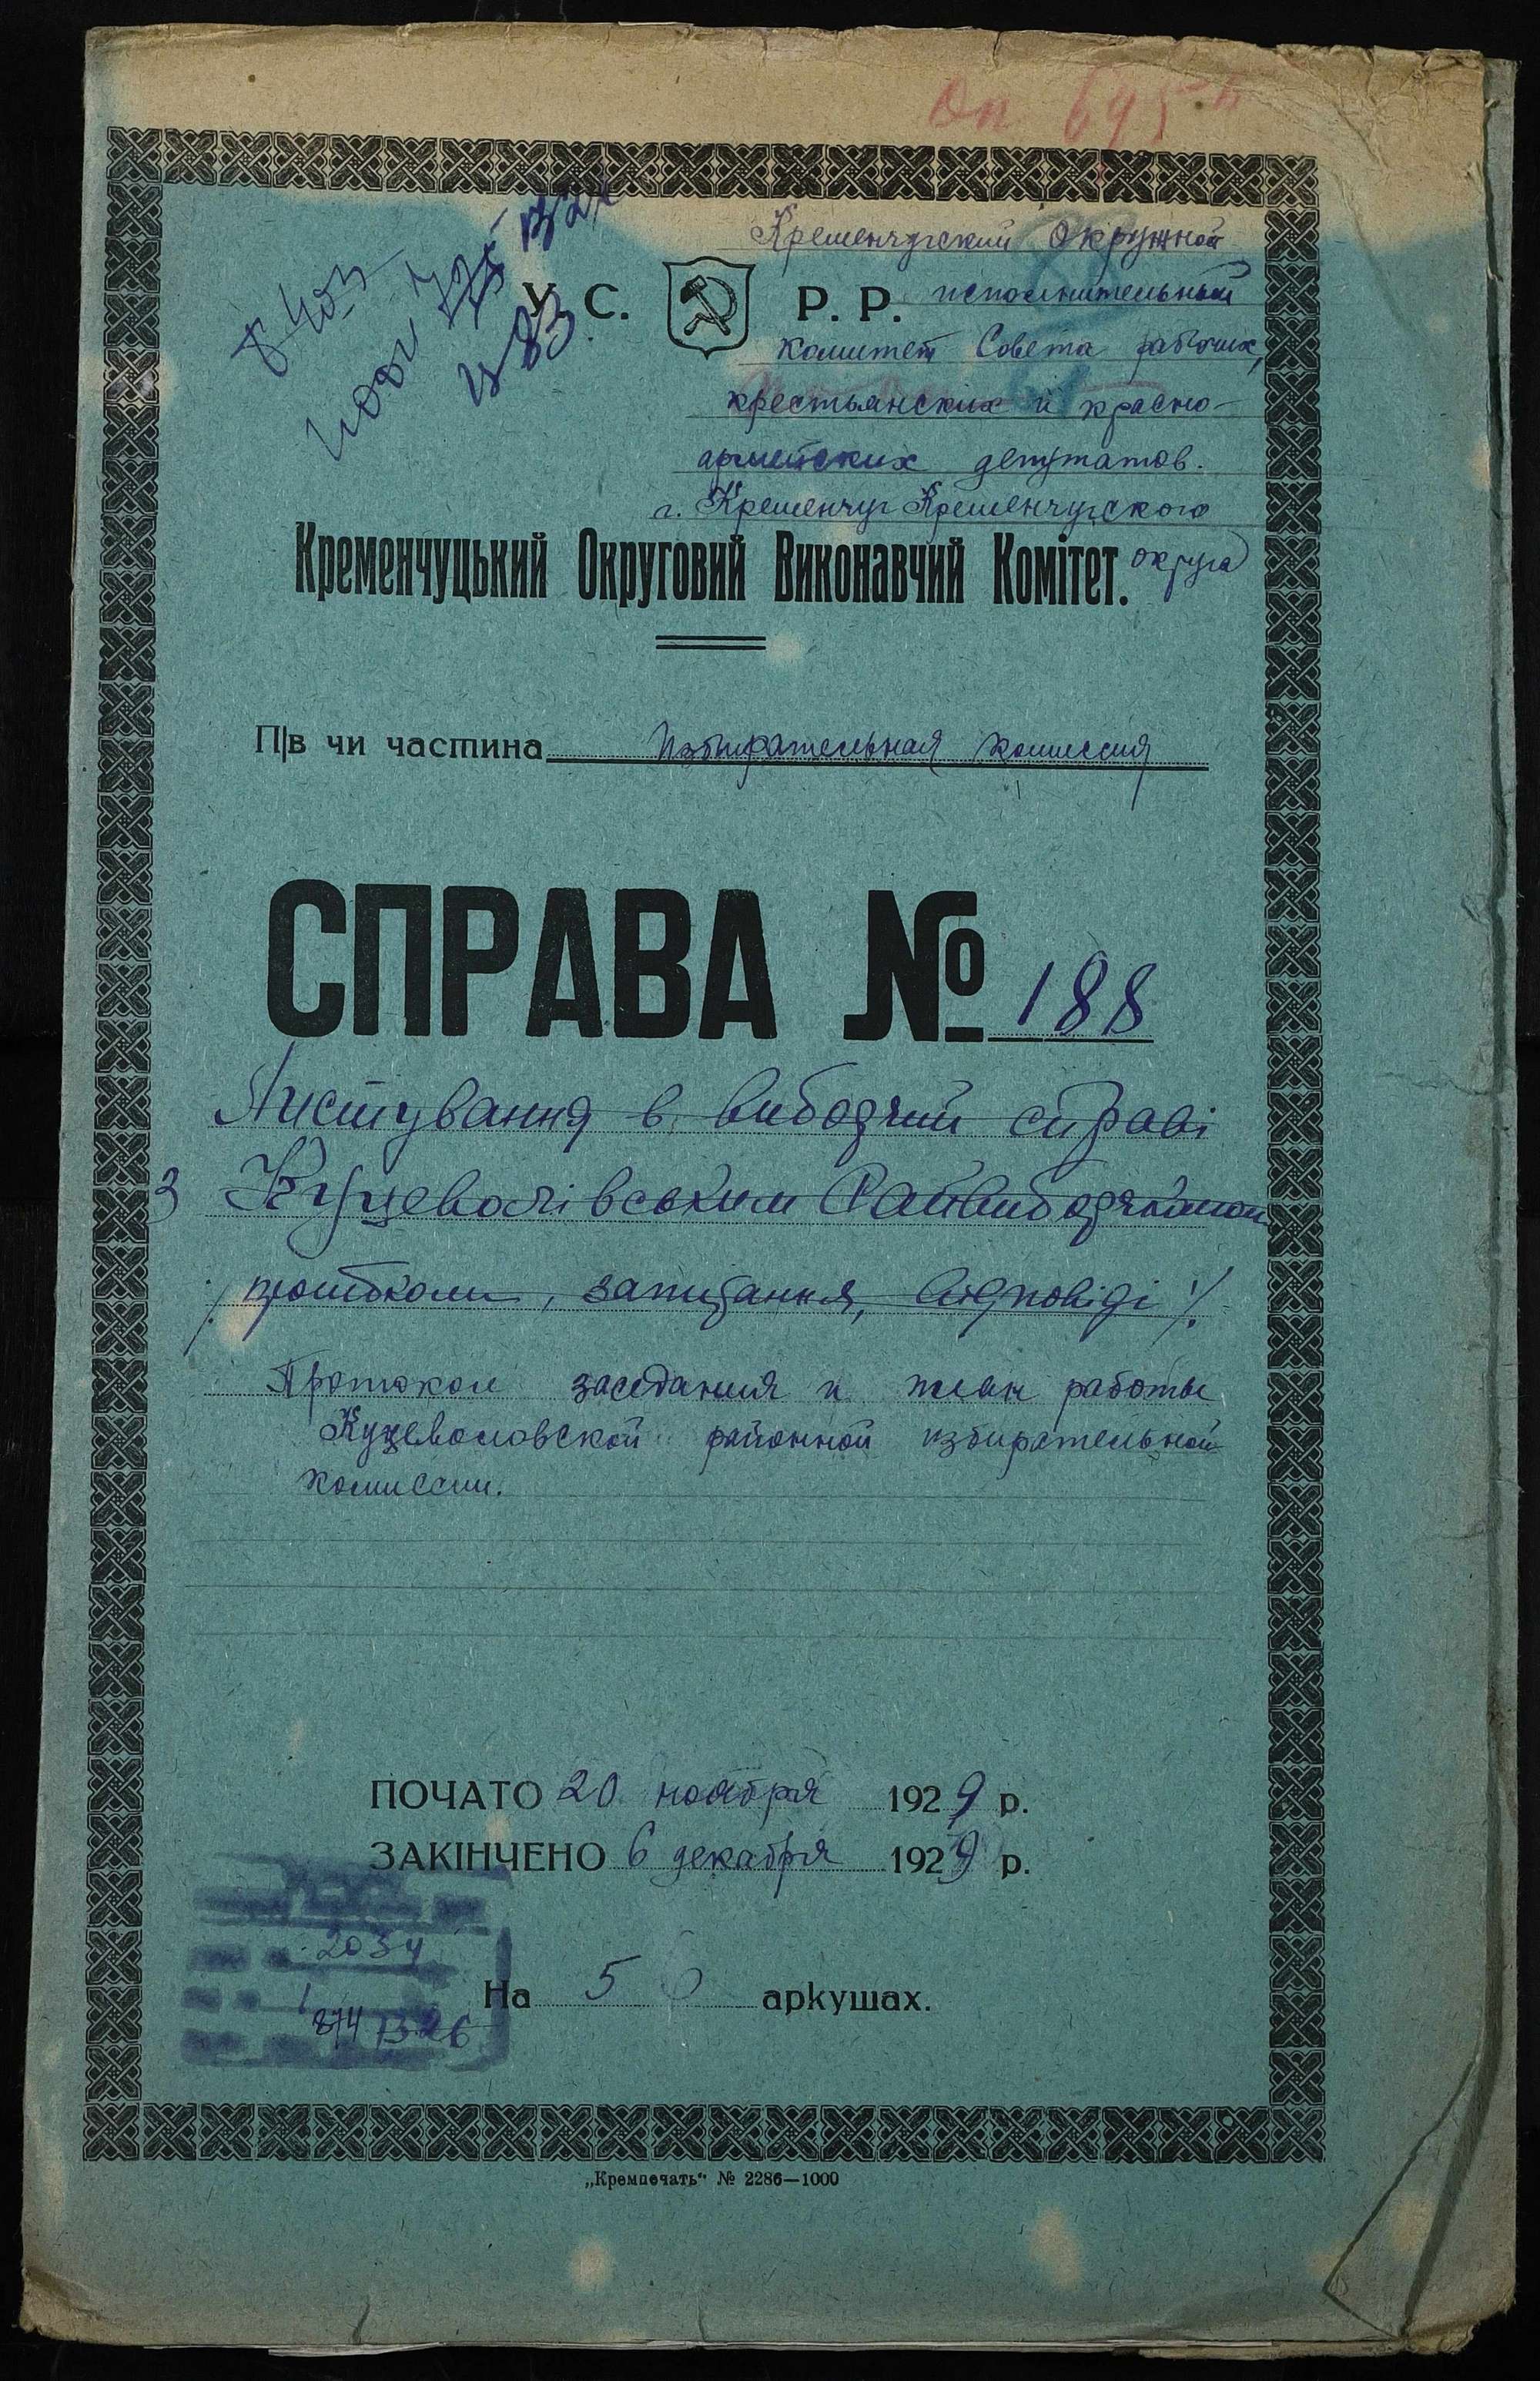 Оп 695-п
Кременчугский Окружной
У. С. Р. Р. исполнительный
комитет Совета рабочих,
крестьянских и красно-
армейских депутатов.
г. Кременчуг Кременчугского
округа
Кременчуцький Округовий Виконавчий Комітет.
П|в чи частина Избирательная комиссия
СПРАВА № 188
Листування в виборчий справі
з Куцеволівським Райвиборчкомом
/. протоколи, запитання, відповіді ./.
Протокол заседания и план работы
Куцеволовской районной избирательной
комиссии.
ПОЧАТО 20 ноября 1929 р.
ЗАКІНЧЕНО 6 декабря 1929 р.
2034
1
874
На 5 аркушах.
„Кремпечать" № 2286—1000